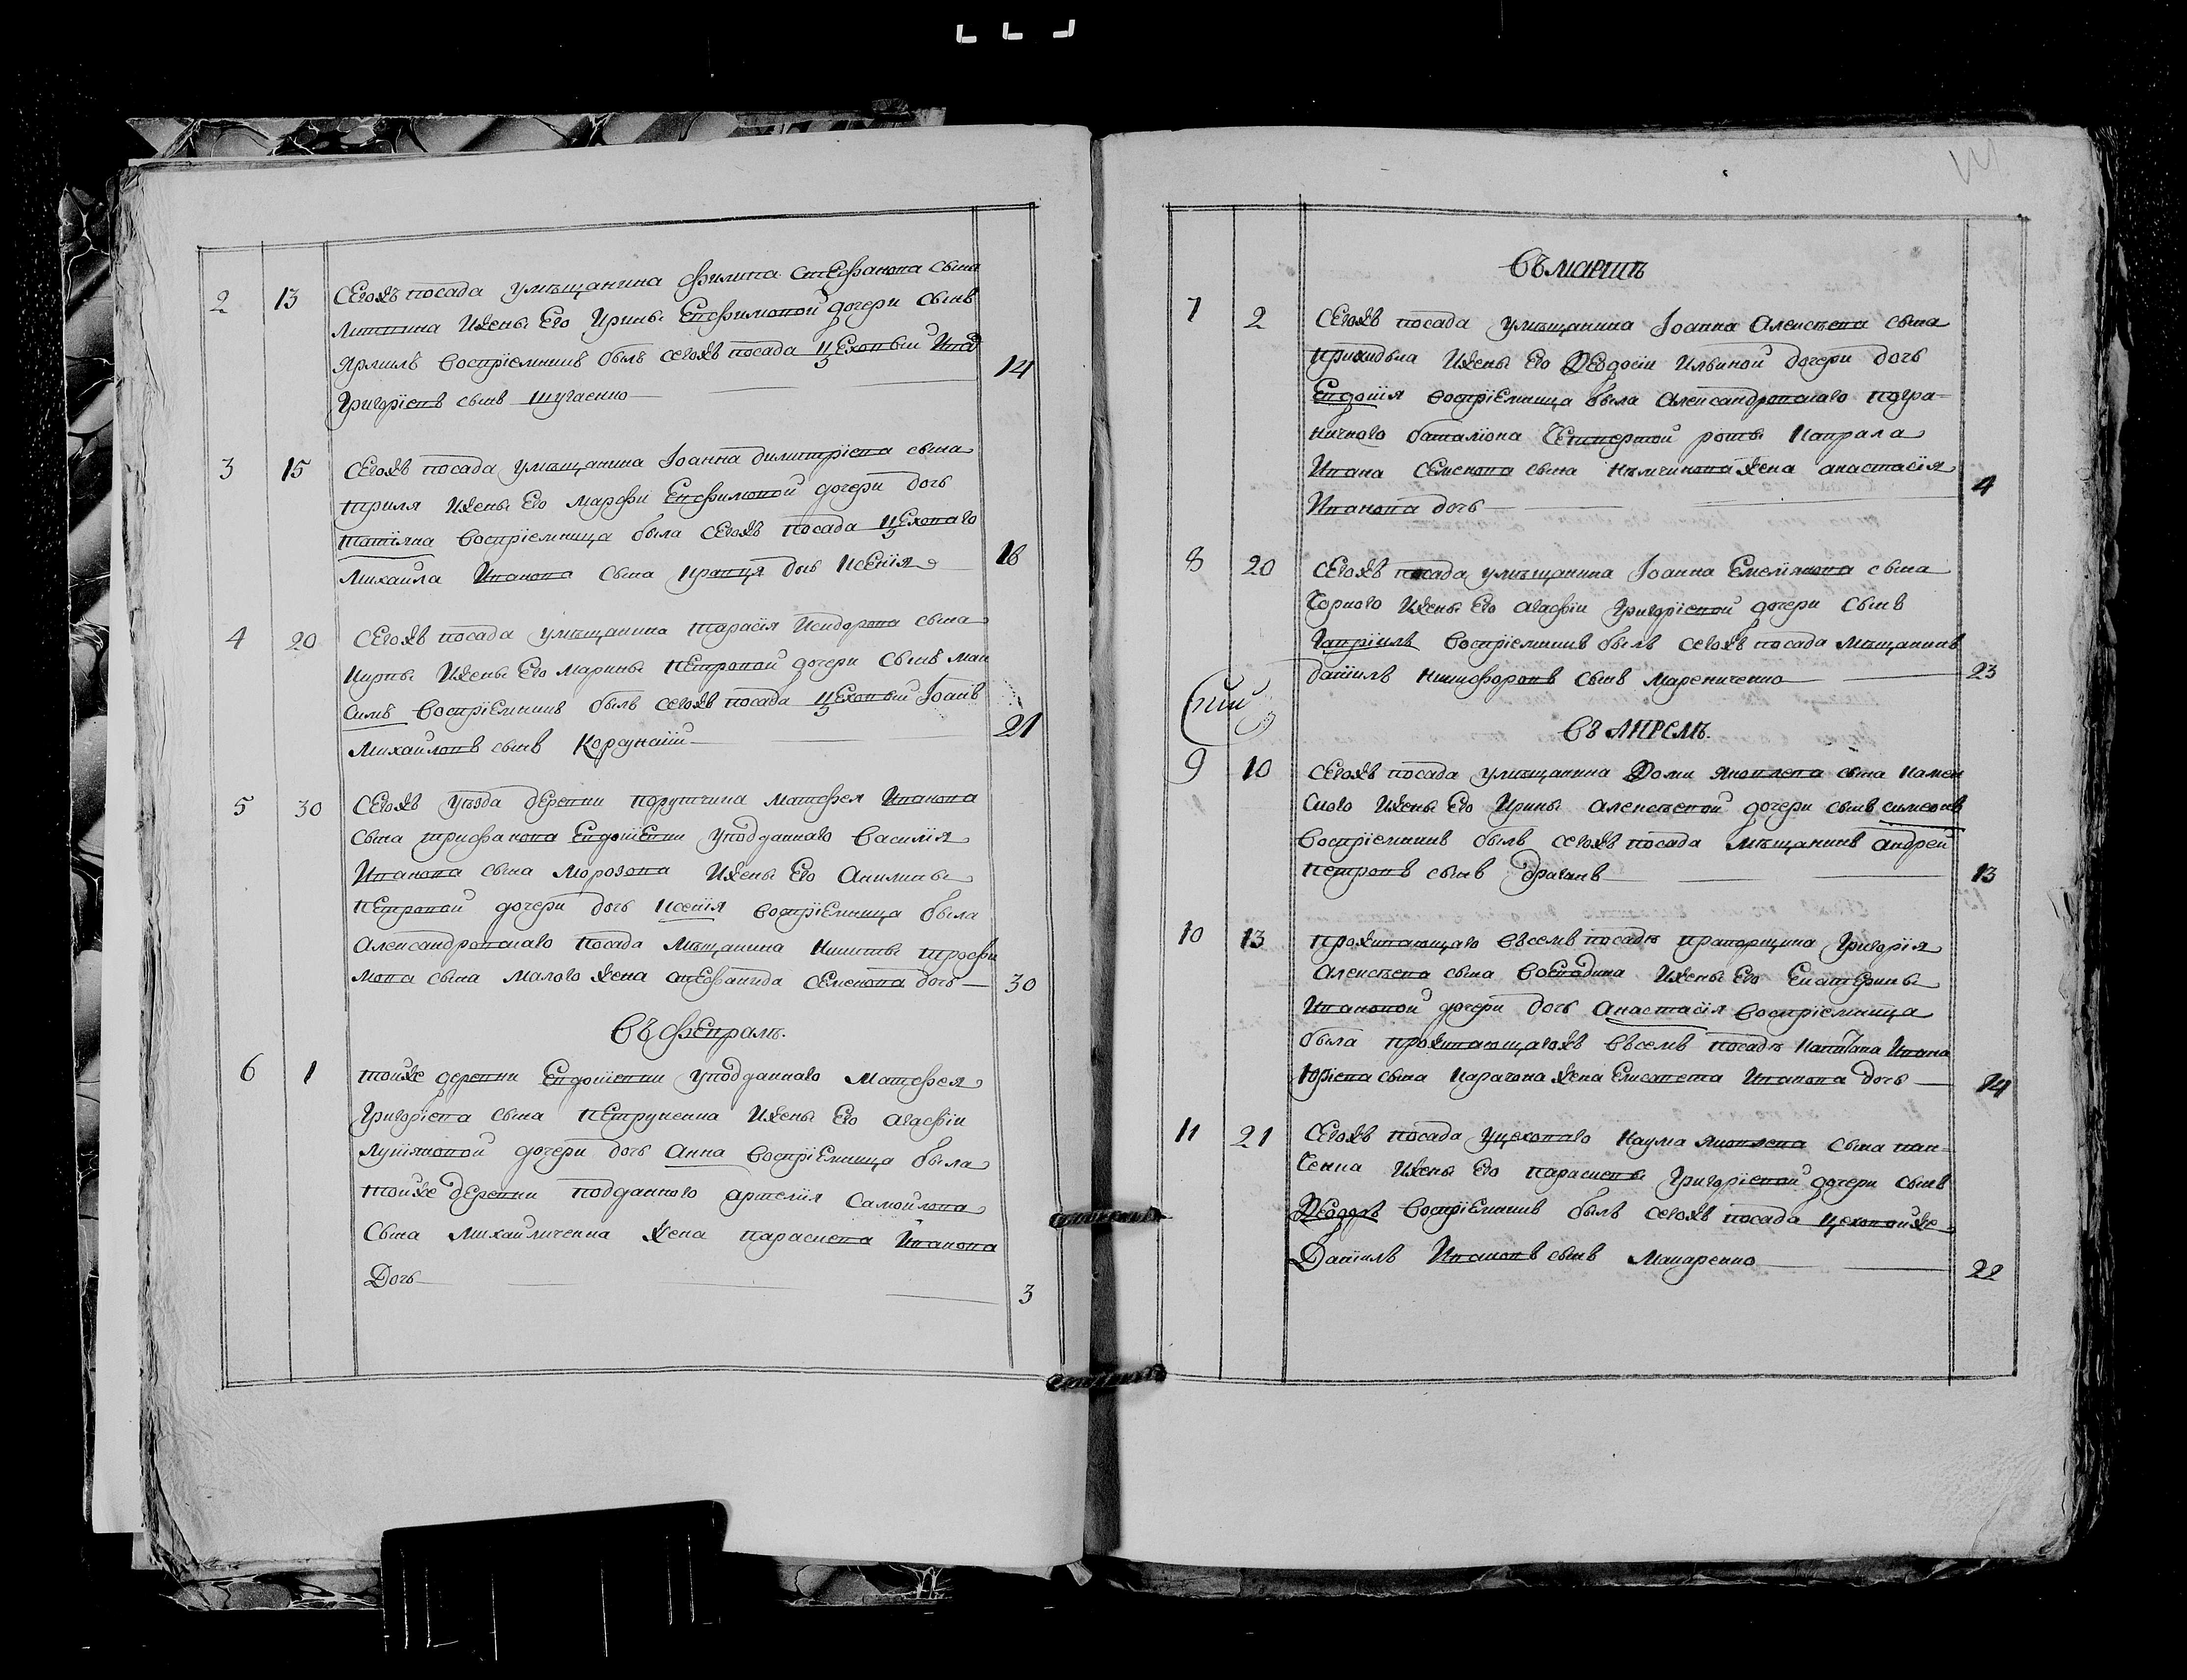 2 13 Сегожъ посада умѣщанина Филипа Стефанова сына
Литвина Ижены Его Ирины Евфимовой дочери сынъ
Ярмилъ Воспріемникъ былъ сегожъ посада цеховый
Григоріевъ сынъ 14
3 15 Сегожъ посада умѣщанина Іоанна Димитріева сына
Ижены Его Марфи Евфимовой дочери дочь
Татіяна Воспріемница была Сегожъ посада цеховаго
Михаила Иванова сына Кравця дочь Ксенія 16
4 20 Сегожъ посада умѣщанина Тарасія Исидорова сына
Кирпы Ижены Его Марины Петровой дочери сынъ Мак
симъ Воспріемникъ былъ сегожъ посада цеховый Іоанъ
Михайловъ сынъ 21
5 30 Сегожъ уѣзда деревни порутчика Матфея Иванова
сына Трифанова Евдошевки уподданнаго Василія
Иванова сына Морозова Ижены Его Акилины
Петровой дочери дочь Ксенія воспріемница была
Александровскаго посада мѣщанина Никиты Трофи
мова сына Малого жена Стефанида Семенова дочь 30
Въ Февралѣ.
6 1 тойже деревни Евдошевки уподданнаго Матфея
Григоріева сына Петруненка Ижены Его Агафіи
Лукіяновой дочери дочь Анна Воспріемница была
тойже деревни подданного Артемія Самойлова
сына Михайличенка жена Параскева Иванова
Дочь 3
Въ Мартѣ
7 2 Сегожъ посада умѣщанина Іоанна Алексѣева сына
Приходька Ижены Его Феодосіи Ильиной дочери дочь
Евдокія воспріемница была Александровскаго погра-
ничного баталіона четвертой роты капрала
Ивана Семенова сына Нѣмчинова жена Анастасія
Иванова дочь 4
8 20 Сегожъ посада умѣщанина Іоанна Емеліянова сына
Чорного Ижены Его Агафіи Григоріевой дочери сынъ
Гавріилъ Воспріемникъ былъ сегожъ посада мѣщанинъ
Даніилъ Никифоровъ сынъ Марениченко 23
Въ Апрелѣ.
9 10 Сегожъ посада умѣщанина Фоми Яковлева сына Камен
ского Ижены Его Ирины Алексѣевой дочери сынъ Симеонъ
Воспріемникъ былъ сегожъ посада мѣщанинъ Андрей
Петровъ сынъ Драганъ 13
10 13 Проживающаго Въсемъ посадѣ прапорщика Григорія
Алексѣева сына Воеводина Ижены Его Екатерины
Ивановой дочери дочь Анастасія Воспріемница
была проживающагожъ Въсемъ посадѣ капитана Ивана
Юріева сына Карачона жена Елисавета Иванова дочь 14
11 21 Сегожъ посада уцеховаго Наума Яковлева сына пан-
ченка Ижены Его Параскевы Григоріевой дочери сынъ
Феодоръ Воспріемникъ былъ сегожъ посада цеховойже
Даніилъ Ивановъ сынъ Макаренко 22